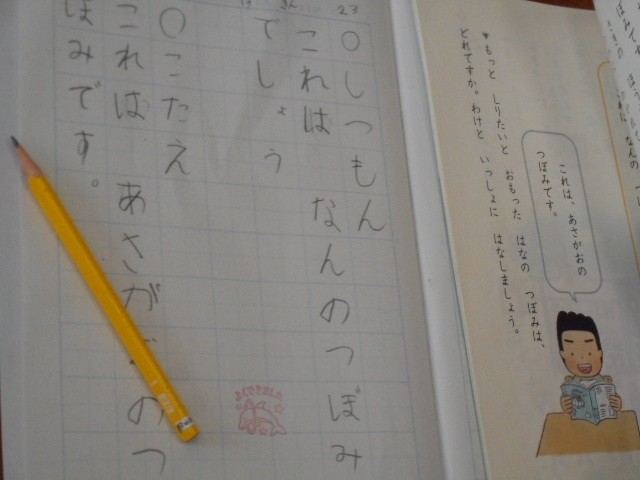 これは、あさがおの
つぼみです。
▼もっと しりたいと おもった はなの つぼみは、
どれですか。わけと いっしょに はなしましょう。
23
○しつもん
これは なんのつぼみ
でしょう
よくできました
○こたえ
これは あさがおのつ
ぼみです。